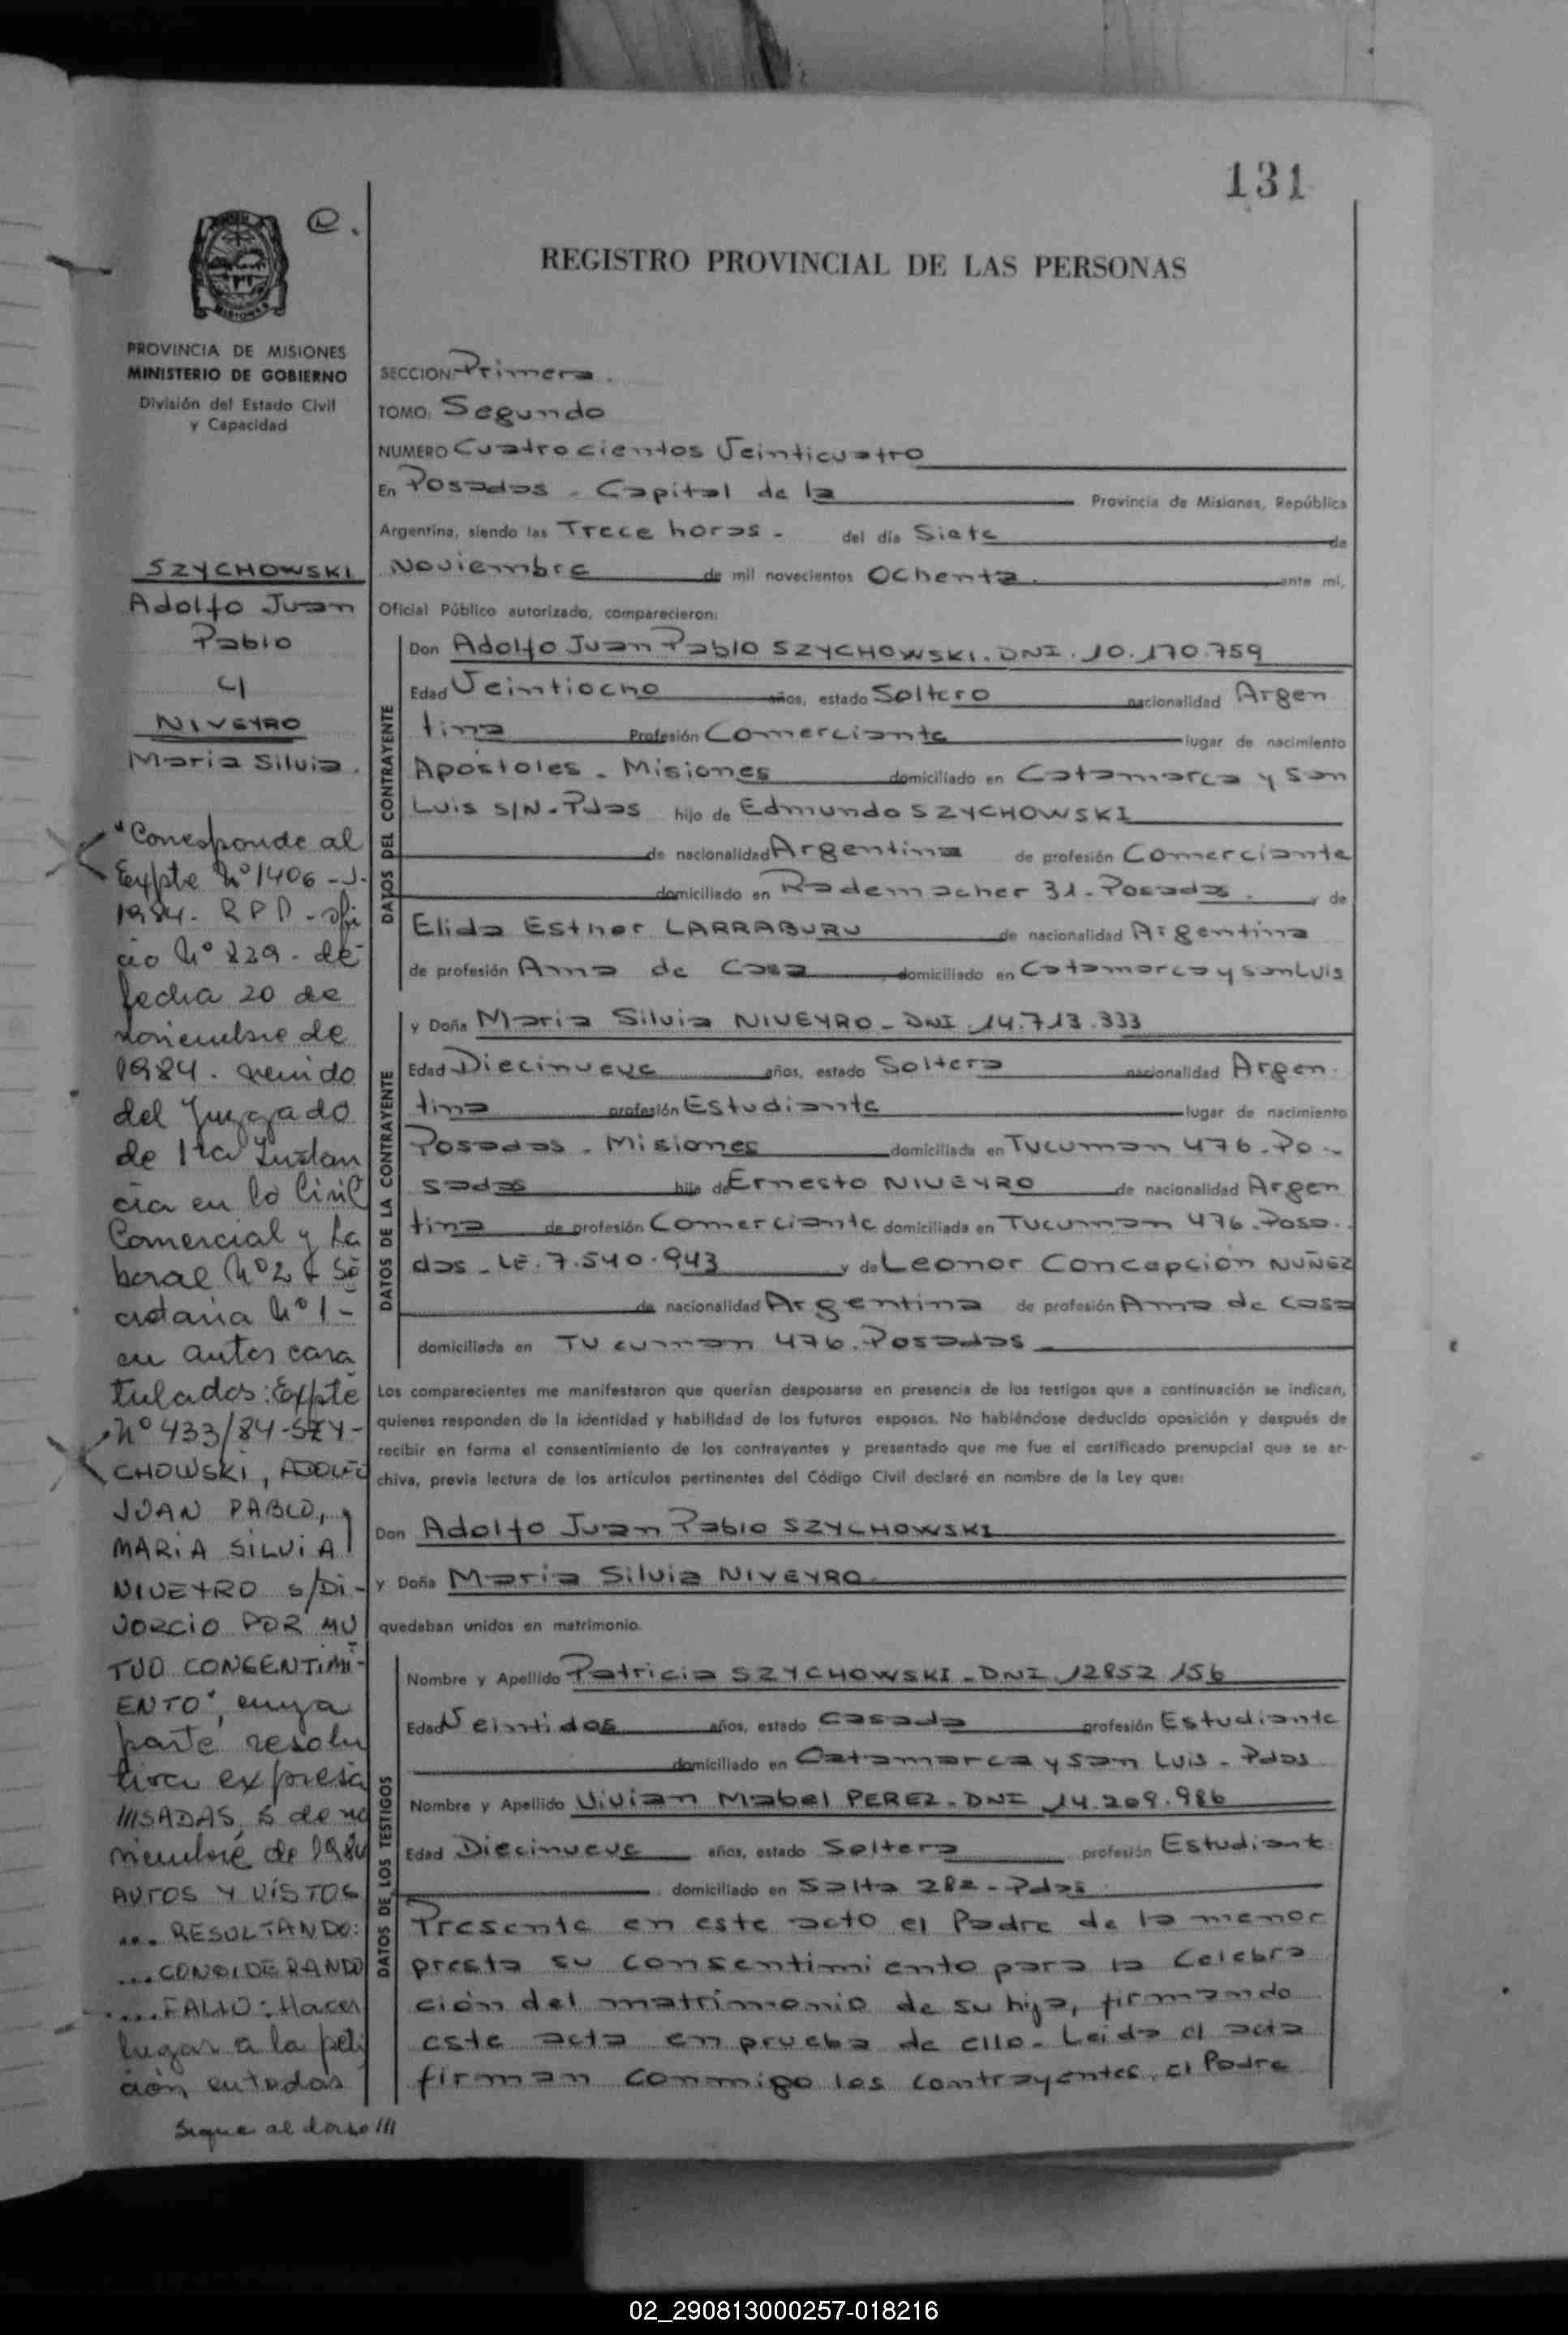 131
REGISTRO PROVINCIAL DE LAS PERSONAS
MISIONES
PROVINCIA DE MISIONES
MINISTERIO DE GOBIERNO
División del Estado Civil
y Capacidad
SZYCHOWSKI
Adolfo Juan
Pablo
c/
NIVEYRO
Maria Silvia.
"Corresponde al
Expte Nº 1406-J-
1984- RPP - ofi
cio Nº 229- de
fecha 20 de
noviembre de
1984. venido
del Juzgado
de 1ra Instan
cia en lo Civil
Comercial y La
boral Nº 2 Se
cretaria Nº 1-
en autos cara
tulados: Expte
Nº 433/84-SZY-
CHOWSKI, ADOLFO
JUAN PABLO, y
MARIA SILVIA
NIVEYRO s/DI-
VORCIO POR MU
TUO CONSENTIMI-
ENTO", cuya
parte resolu
tiva expresa
///SADAS, 5 de no
viembre de 1984
AUTOS Y VISTOS
... RESULTANDO:
... CONSIDERANDO
.... FALLO: Hacer
lugar a la peti
ción en todas
Sigue al dorso ///
SECCION: Primera.
TOMO: Segundo
NUMERO Cuatrocientos Veinticuatro
En Posadas - Capital de la Provincia de Misiones, República
Argentina, siendo las Trece horas - del día Siete de
Noviembre de mil novecientos Ochenta. ante mí,
Oficial Público autorizado, comparecieron:
DATOS DEL CONTRAYENTE
Don Adolfo Juan Pablo SZYCHOWSKI. DNI. 10.170.759
Edad Veintiocho años, estado Soltero nacionalidad Argen
tina Profesión Comerciante lugar de nacimiento
Apóstoles - Misiones domiciliado en Catamarca y San
Luis S/N - Pdas hijo de Edmundo SZYCHOWSKI
de nacionalidad Argentina de profesión Comerciante
domiciliado en Rademacher 31 - Posadas. y de
Elida Esther LARRABURU de nacionalidad Argentina
de profesión Ama de Casa domiciliado en Catamarca y San Luis
DATOS DE LA CONTRAYENTE
y Doña Maria Silvia NIVEYRO - DNI 14.713.333
Edad Diecinueve años, estado Soltera nacionalidad Argen.
tina profesión Estudiante lugar de nacimiento
Posadas - Misiones domiciliada en Tucuman 476 - Po -
sadas hija de Ernesto NIVEYRO de nacionalidad Argen
tina de profesión Comerciante domiciliada en Tucuman 476. Posa.
das - LE. 7.540.943 y de Leonor Concepción NUÑEZ
de nacionalidad Argentina de profesión Ama de Casa
domiciliada en Tucuman 476. Posadas
Los comparecientes me manifestaron que querían desposarse en presencia de los testigos que a continuación se indican,
quienes responden de la identidad y habilidad de los futuros esposos. No habiéndose deducido oposición y después de
recibir en forma el consentimiento de los contrayentes y presentado que me fue el certificado prenupcial que se ar-
chiva, previa lectura de los artículos pertinentes del Código Civil declaré en nombre de la Ley que:
Don Adolfo Juan Pablo SZYCHOWSKI
y Doña Maria Silvia NIVEYRO-
quedaban unidos en matrimonio.
DATOS DE LOS TESTIGOS
Nombre y Apellido Patricia SZYCHOWSKI - DNI 12852 156
Edad Veintidos años, estado casada profesión Estudiante
domiciliado en Catamarca y San Luis - Pdas
Nombre y Apellido Vivian Mabel PEREZ - DNI 14.209.986
Edad Diecinueve años, estado Soltera profesión Estudiant.
domiciliado en Salta 282 - Pdas
Presente en este acto el Padre de la menor
presta su consentimiento para la Celebra
ción del matrimonio de su hija, firmando
este acta en prueba de ello - Leida el acta
firman conmigo los contrayentes, el Padre
02_290813000257-018216